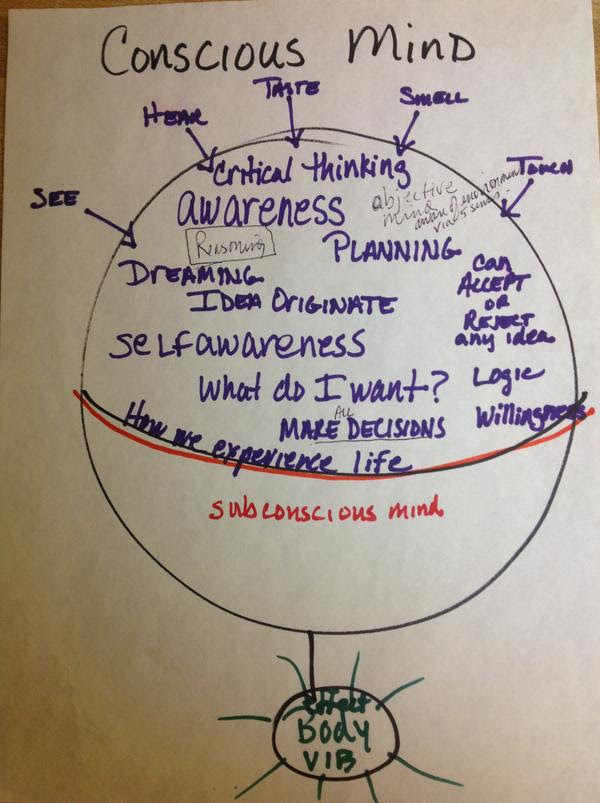 Conscious Mind
TASTE
SMELL
HEAR
TOUCH
SEE
Critical thinking
awareness
objective
mind
aware of environment
via 5 senses
Reasoning
PLANNING
DREAMING
IDEA ORIGINATE
can
ACCEPT
OR
REJECT
any idea
self awareness
What do I want?
Logic
ALL
MAKE DECISIONS
Willingness
How we experience life
subconscious mind
effect
BODY
VIB